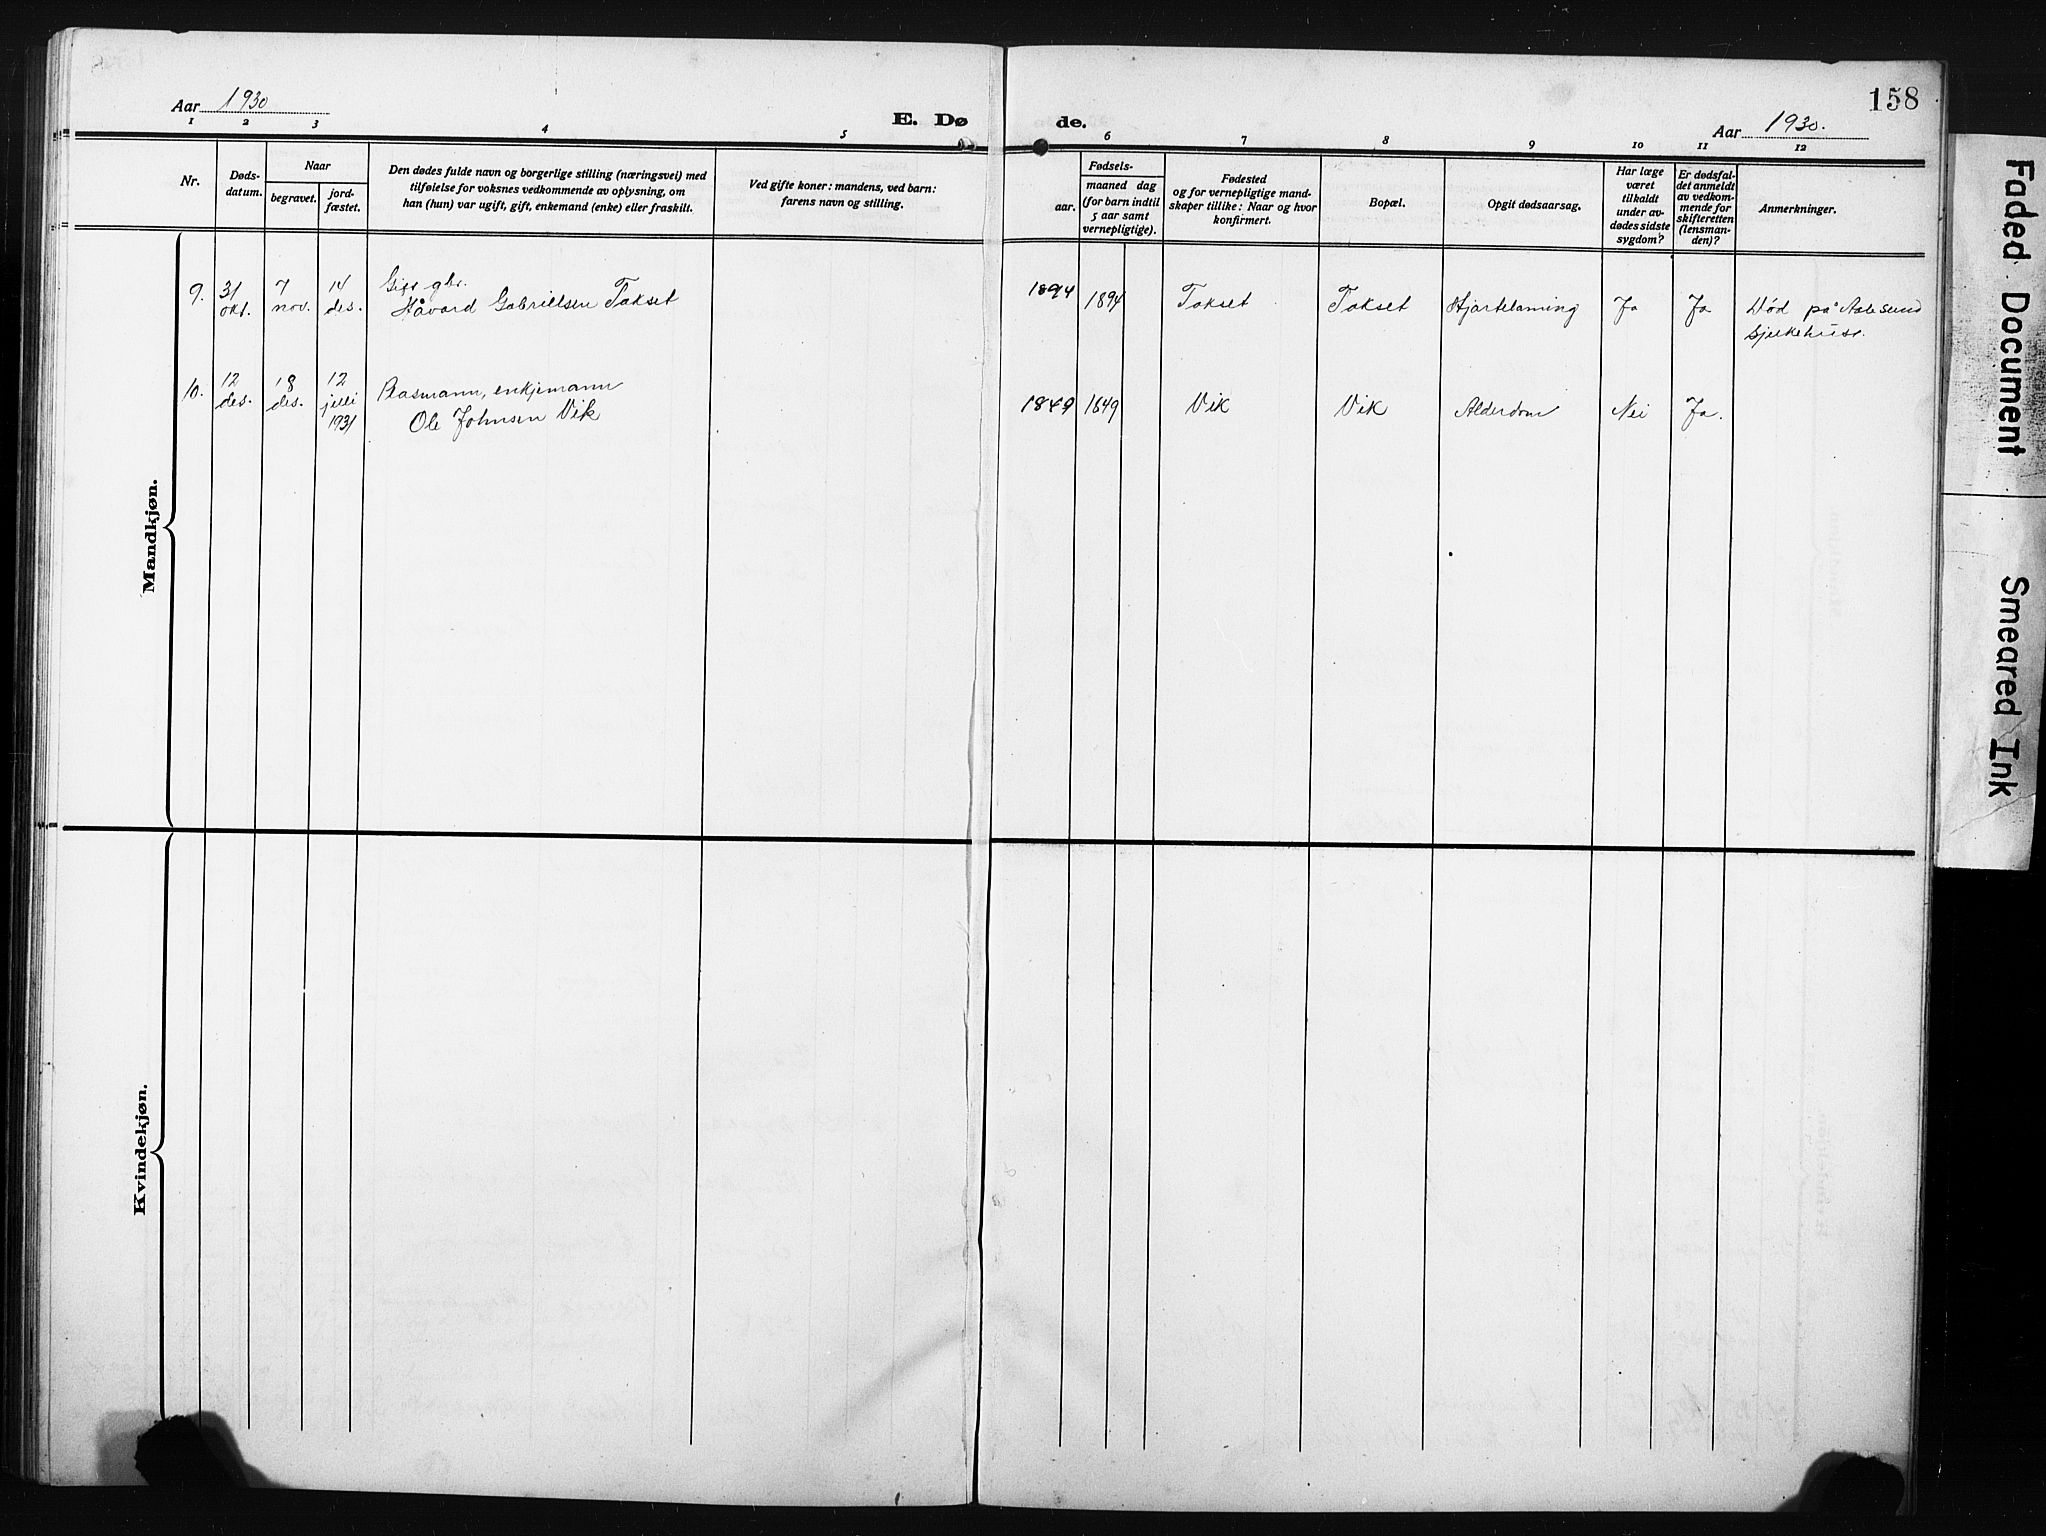 158
Aar 1930
E. Døde.
Aar 1930.
1 2 3 4 5 6 7 8 9 10 11 12
Nr.
Døds-
datum.
Naar
begravet.
jord-
fæstet.
Den dødes fulde navn og borgerlige stilling (næringsvei) med
tilføielse for voksnes vedkommende av oplysning, om
han (hun) var ugift, gift, enkemand (enke) eller fraskilt.
Ved gifte koner: mandens, ved barn:
farens navn og stilling.
Fødsels-
aar.
maaned dag
(for barn indtil
5 aar samt
vernepligtige).
Fødested
og for vernepligtige mand-
skaper tillike: Naar og hvor
konfirmert.
Bopæl.
Opgit dødsaarsag.
Har læge
været
tilkaldt
under av-
dødes sidste
sygdom?
Er dødsfal-
det anmeldt
av vedkom-
mende for
skifteretten
(lensman-
den)?
Anmerkninger.
Mandkjøn.
9. 31 okt. 7 nov. 14 des. Gift gbr.
Håvard Gabrielsen Takset 1894 1894 Takset Takset Hjartelaming Ja Ja Død på Aalesund
sjukehus.
10. 12 des. 18 des. 12 juli 1931 Plasmann, enkjemann
Ole Johnsen Vik 1849 1849 Vik Vik Alderdom Nei Ja.
Kvindekjøn.
Faded Document
Smeared Ink